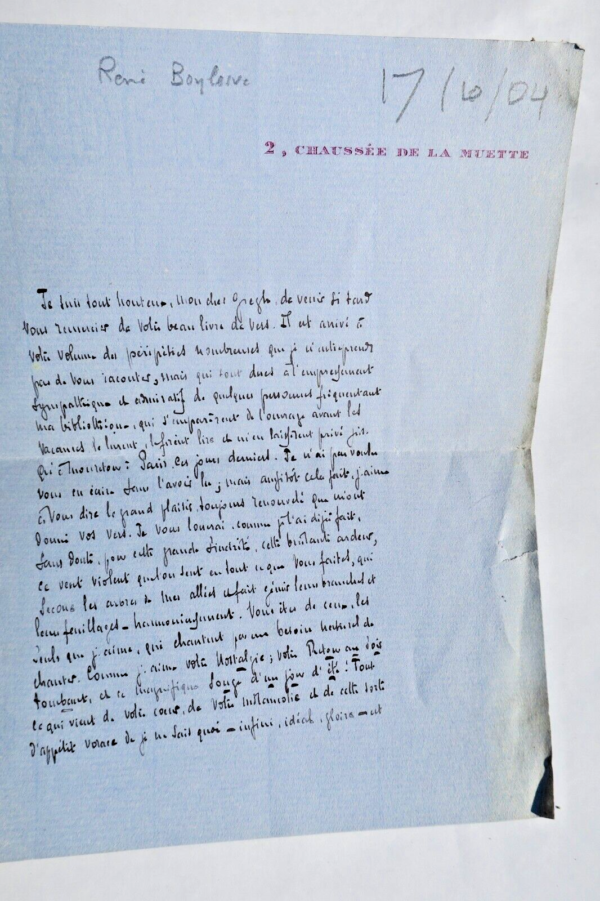 René Boylesve
17/10/04
2, CHAUSSÉE DE LA MUETTE
Je suis tout honteux, mon cher Gregh, de venir si tard
vous remercier de votre beau livre de vers. Il est arrivé à
votre volume des péripéties nombreuses que je n'entreprends
pas de vous raconter, mais qui sont dues à l'empressement
sympathique et admiratif de quelques personnes fréquentant
ma bibliothèque, qui s'emparèrent de l'ouvrage avant les
vacances le lurent, le firent lire et m'en laissèrent privé jus-
qu'à mon retour à Paris, ces jours derniers. Je n'ai pas voulu
vous en écrire sans l'avoir lu ; mais aussitôt cela fait, j'aime
à vous dire le grand plaisir, toujours renouvelé que m'ont
donné vos vers. Je vous louerai, comme je l'ai déjà fait,
sans doute, pour cette grande sincérité, cette brûlante ardeur,
ce vent violent qu'on sent en tout ce que vous faites, qui
secoue les arbres de mes allées et fait gémir leurs branches et
leurs feuillages – harmonieusement. Vous êtes de ceux, les
seuls que j'aime, qui chantent par un besoin naturel de
chanter. Comme j'aime votre Nostalgie ; votre Retour au soir
tombant, et ce magnifique Songe d'un jour d'été ! Tout
ce qui vient de votre cœur, de votre mélancolie et de cette sorte
d'appétit vorace de je ne sais quoi – infini, idéal, gloire – est